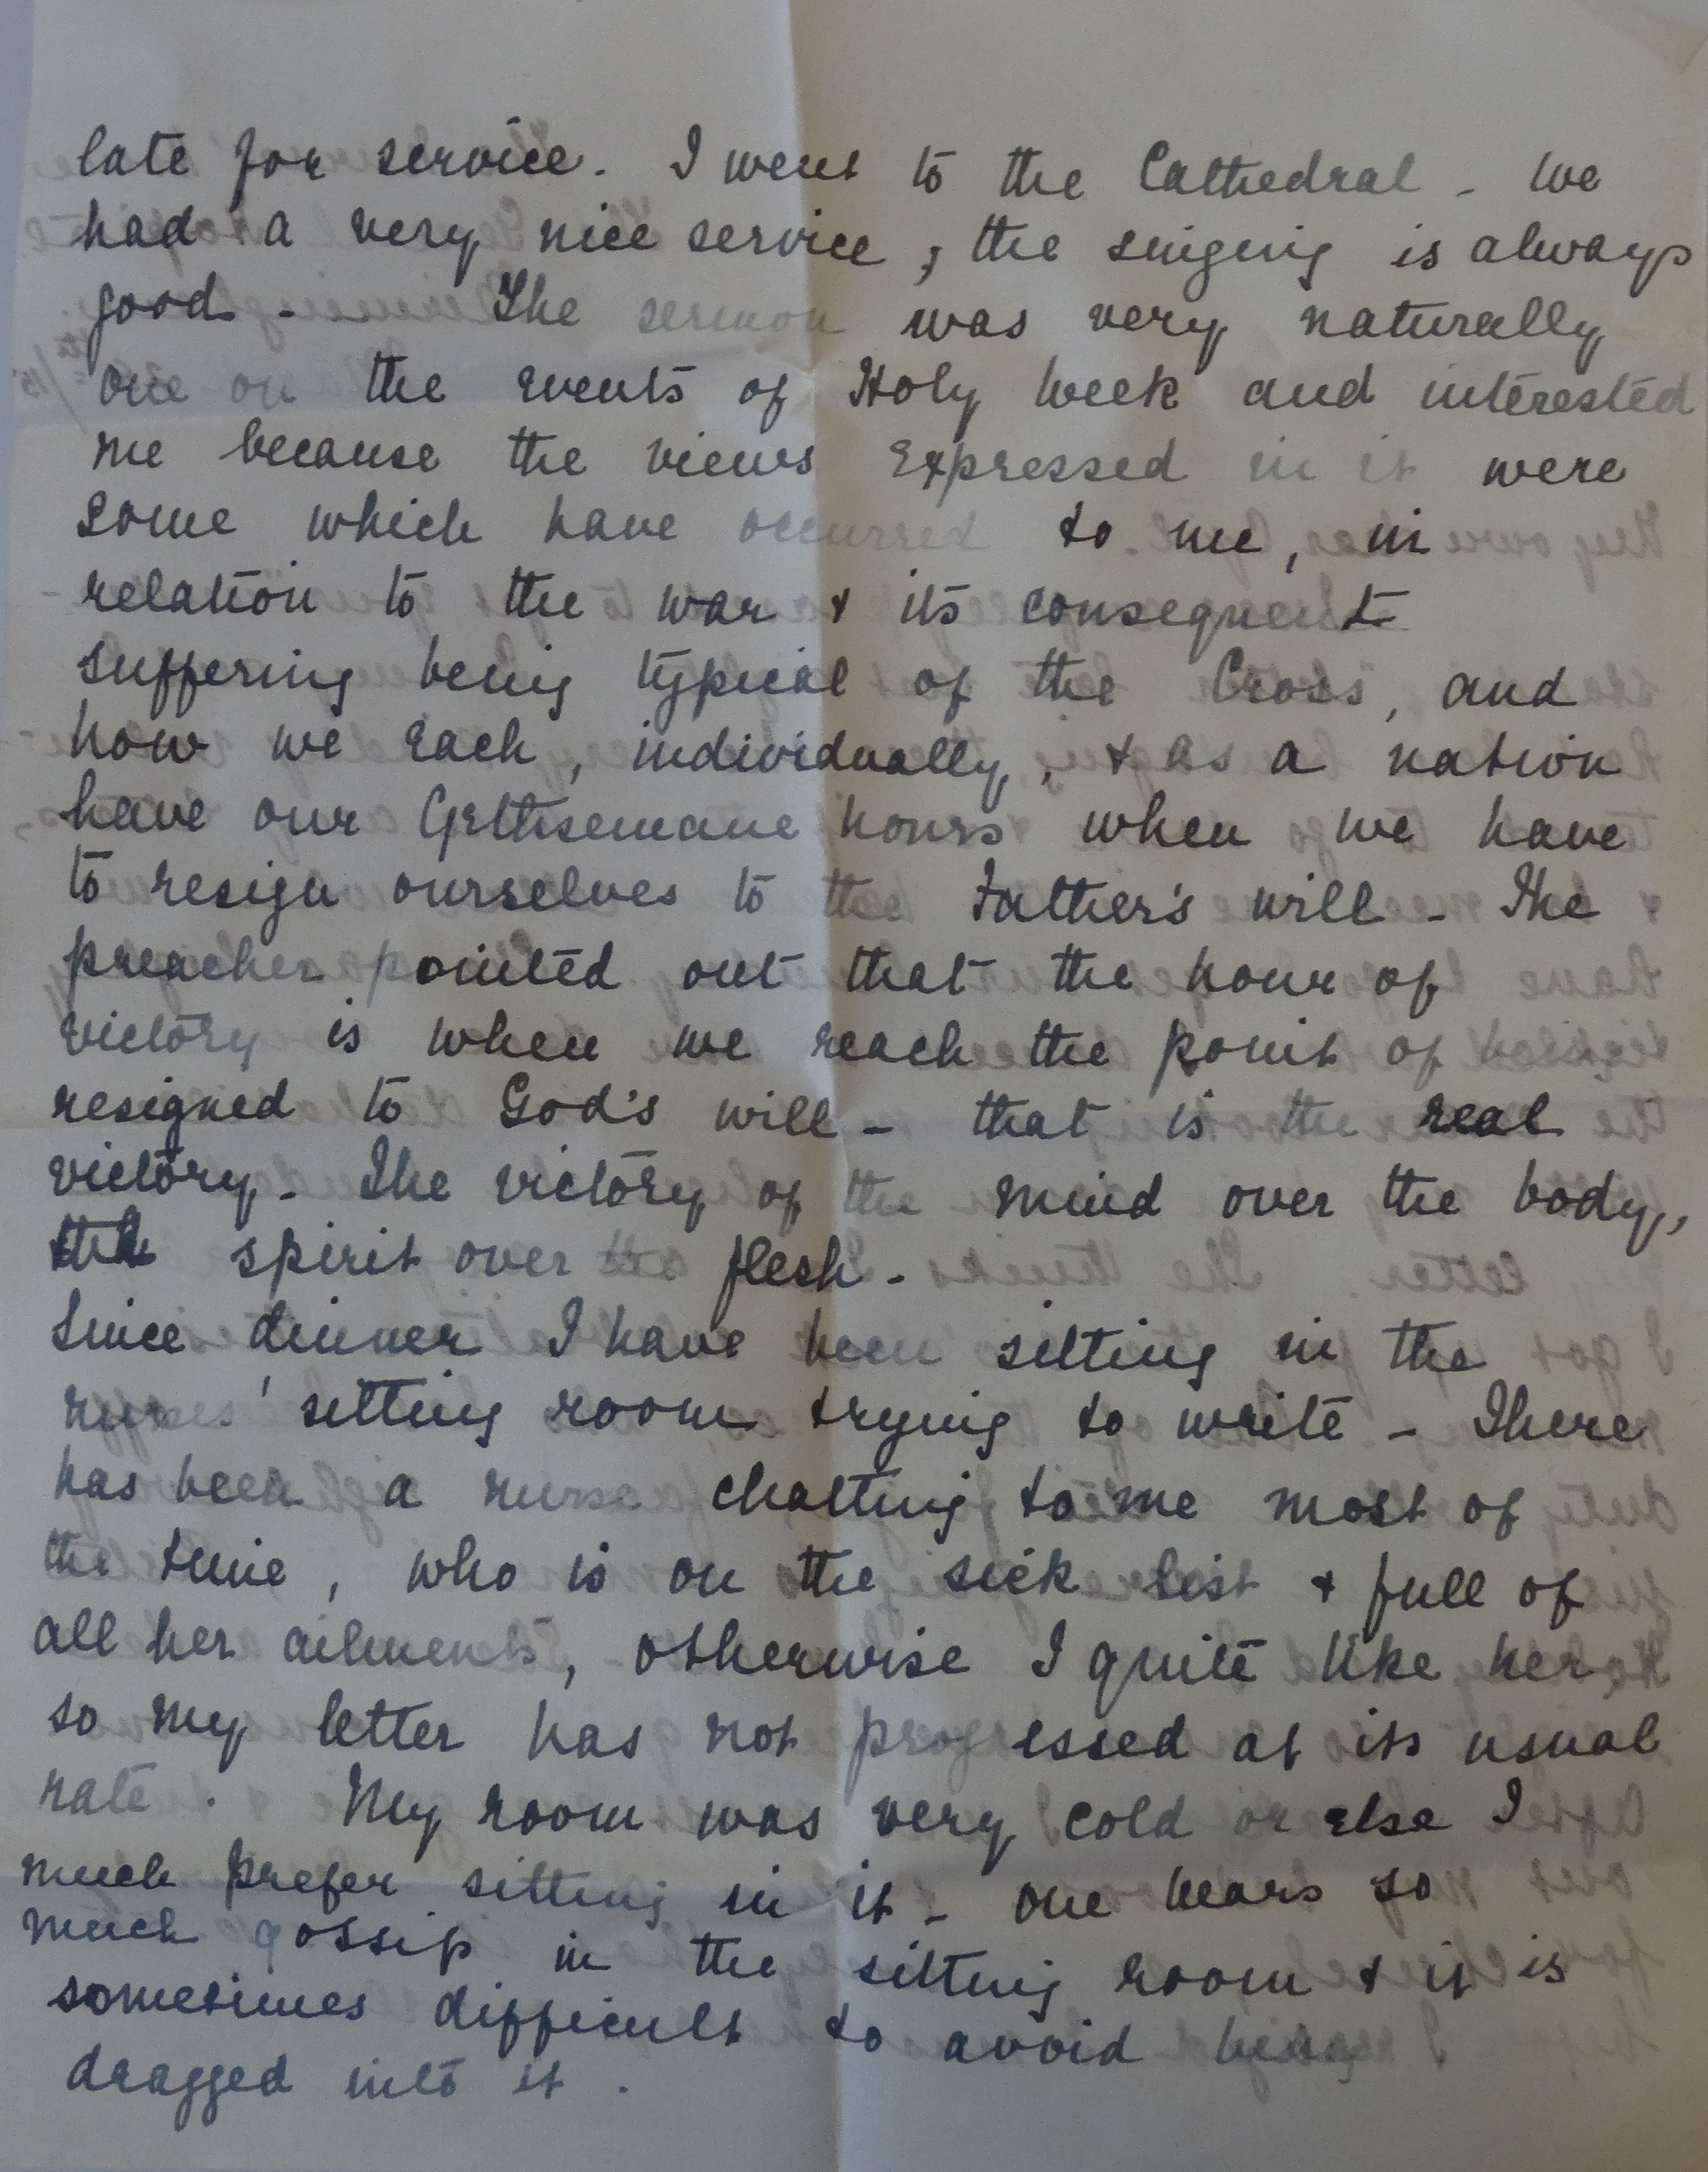 late for service. I went to the Cathedral - We
had a very nice service, the singing is always
good - The sermon was very naturally
one on the events of Holy Week and interested
me because the views expressed in it were
some which have occurred to me, in
relation to the war & its consequent
suffering being typical of the Cross, and
how we each, individually, & as a nation
have our Gethsemane hours when we have
to resign ourselves to the Father's will - The
preacher pointed out that the hour of
victory is when we reach the point of
resigned to God's will - that is the real
victory. The victory of the mind over the body,
the spirit over flesh -
Since dinner I have been sitting in the
nurses' sitting room trying to write - There
has been a nurse chatting to me most of
the time, who is on the sick list & full of
all her ailments, otherwise I quite like her,
so my letter has not progressed at its usual
rate. My room was very cold or else I
much prefer sitting in it - one hears so
much gossip in the sitting room & it is
sometimes difficult to avoid being
dragged into it.